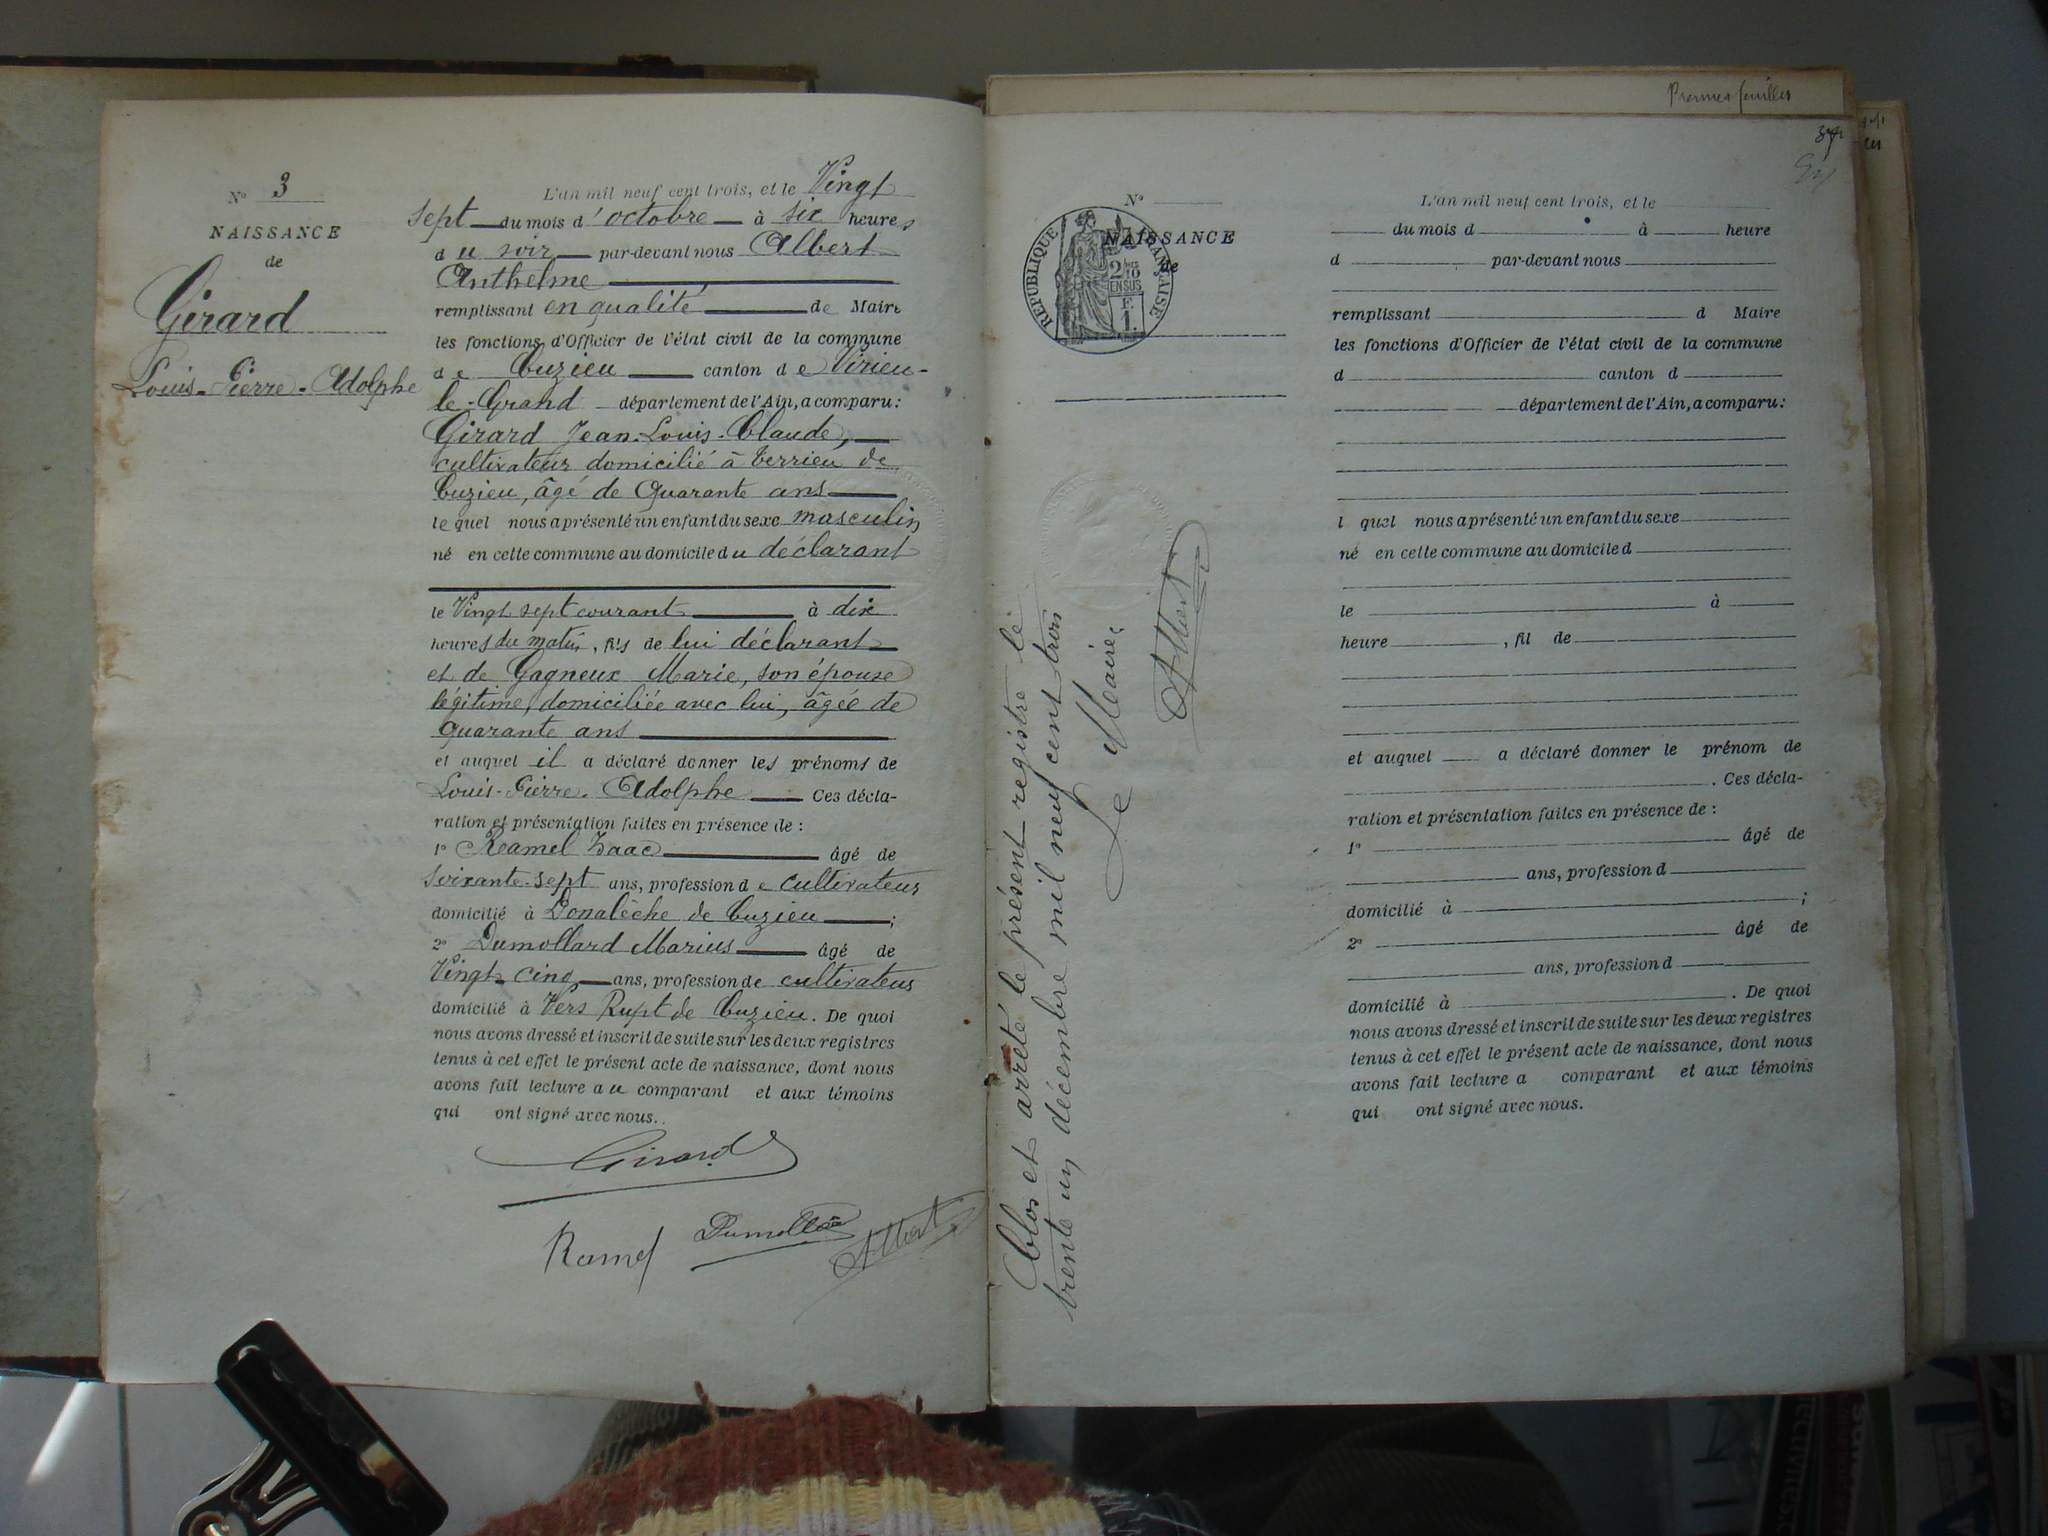 N° 3
NAISSANCE
de
Girard
Louis-Pierre-Adolphe
L'an mil neuf cent trois, et le Vingt
sept du mois d'octobre à six heures
du soir par-devant nous Albert
Anthelme
remplissant en qualité de Maire
les fonctions d'Officier de l'état civil de la commune
de Cuzieu canton de Virieu-
le-Grand département de l'Ain, a comparu:
Girard Jean-Louis-Claude,
cultivateur domicilié à Cerrieu de
Cuzieu, âgé de Quarante ans
lequel nous a présenté un enfant du sexe masculin
né en cette commune au domicile du déclarant
le Vingt sept courant à dix
heures du matin, fils de lui déclarant
et de Gagneux Marie, son épouse
légitime, domiciliée avec lui, âgée de
quarante ans
et auquel il a déclaré donner les prénoms de
Louis-Pierre-Adolphe Ces décla-
ration et présentation faites en présence de:
1° Ramel Isaac âgé de
Soixante-sept ans, profession de cultivateur
domicilié à Bonalèche de Cuzieu;
2° Dumollard Marius âgé de
Vingt-cinq ans, profession de cultivateur
domicilié à Vers Rupt de Cuzieu. De quoi
nous avons dressé et inscrit de suite sur les deux registres
tenus à cet effet le présent acte de naissance, dont nous
avons fait lecture au comparant et aux témoins
qui ont signé avec nous.
Girard
Ramel
Dumollard
Albert
Premier feuillet
N°
NAISSANCE
de
RÉPUBLIQUE FRANÇAISE
2/10
EN SUS
F.
1.
Clos et arrêté le présent registre le
trente un décembre mil neuf cent trois
Le Maire
Albert
L'an mil neuf cent trois, et le
du mois d à heure
d par-devant nous
remplissant d Maire
les fonctions d'Officier de l'état civil de la commune
d canton d
département de l'Ain, a comparu:
l quel nous a présenté un enfant du sexe
né en cette commune au domicile d
le à
heure , fil de
et auquel a déclaré donner le prénom de
. Ces décla-
ration et présentation faites en présence de:
1° âgé de
ans, profession d
domicilié à ;
2° âgé de
ans, profession d
domicilié à . De quoi
nous avons dressé et inscrit de suite sur les deux registres
tenus à cet effet le présent acte de naissance, dont nous
avons fait lecture a comparant et aux témoins
qui ont signé avec nous.